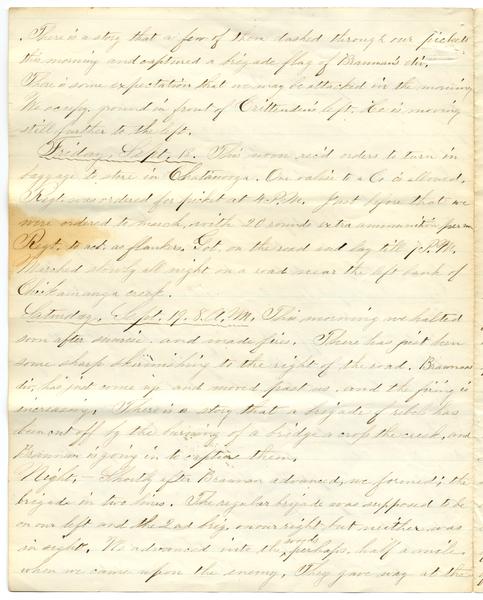 There is a story that a few of them dashed through our pickets
this morning and captured a brigade flag of Brannan's div.
There is some expectation that we may be attacked in the morning
We occupy ground in front of Crittenden's left. He is moving
still further to the left.
Friday, Sept. 18. This noon rec'd orders to turn in
baggage to store in Chatanooga. One valise to a Co is allowed.
Regt. was ordered for picket at 4 P.M. Just before that we
were ordered to march, with 20 rounds extra ammunition per man
Regt. to act as flankers. Got on the road and lay till 7 P.M.
Marched slowly all night on a road near the left bank of
Chikamauga creek.
Saturday, Sept. 19. 8 A.M. This morning we halted
soon after sunrise and made fires. There has just been
some sharp skirmishing to the right of the road. Brannan's
div. has just come up and moved past us, and the firing is
increasing. There is a story that a brigade of rebels has
been cut off by the burning of a bridge across the creek, and
Brannan is going in to capture them.
Night,— Shortly after Brannan advanced, we formed; the
brigade in two lines. The regular brigade was supposed to be
on our left and the 2nd brig. on our right, but neither was
in sight. We advanced into the woods perhaps, half a mile
when we came upon the enemy. They gave way at the